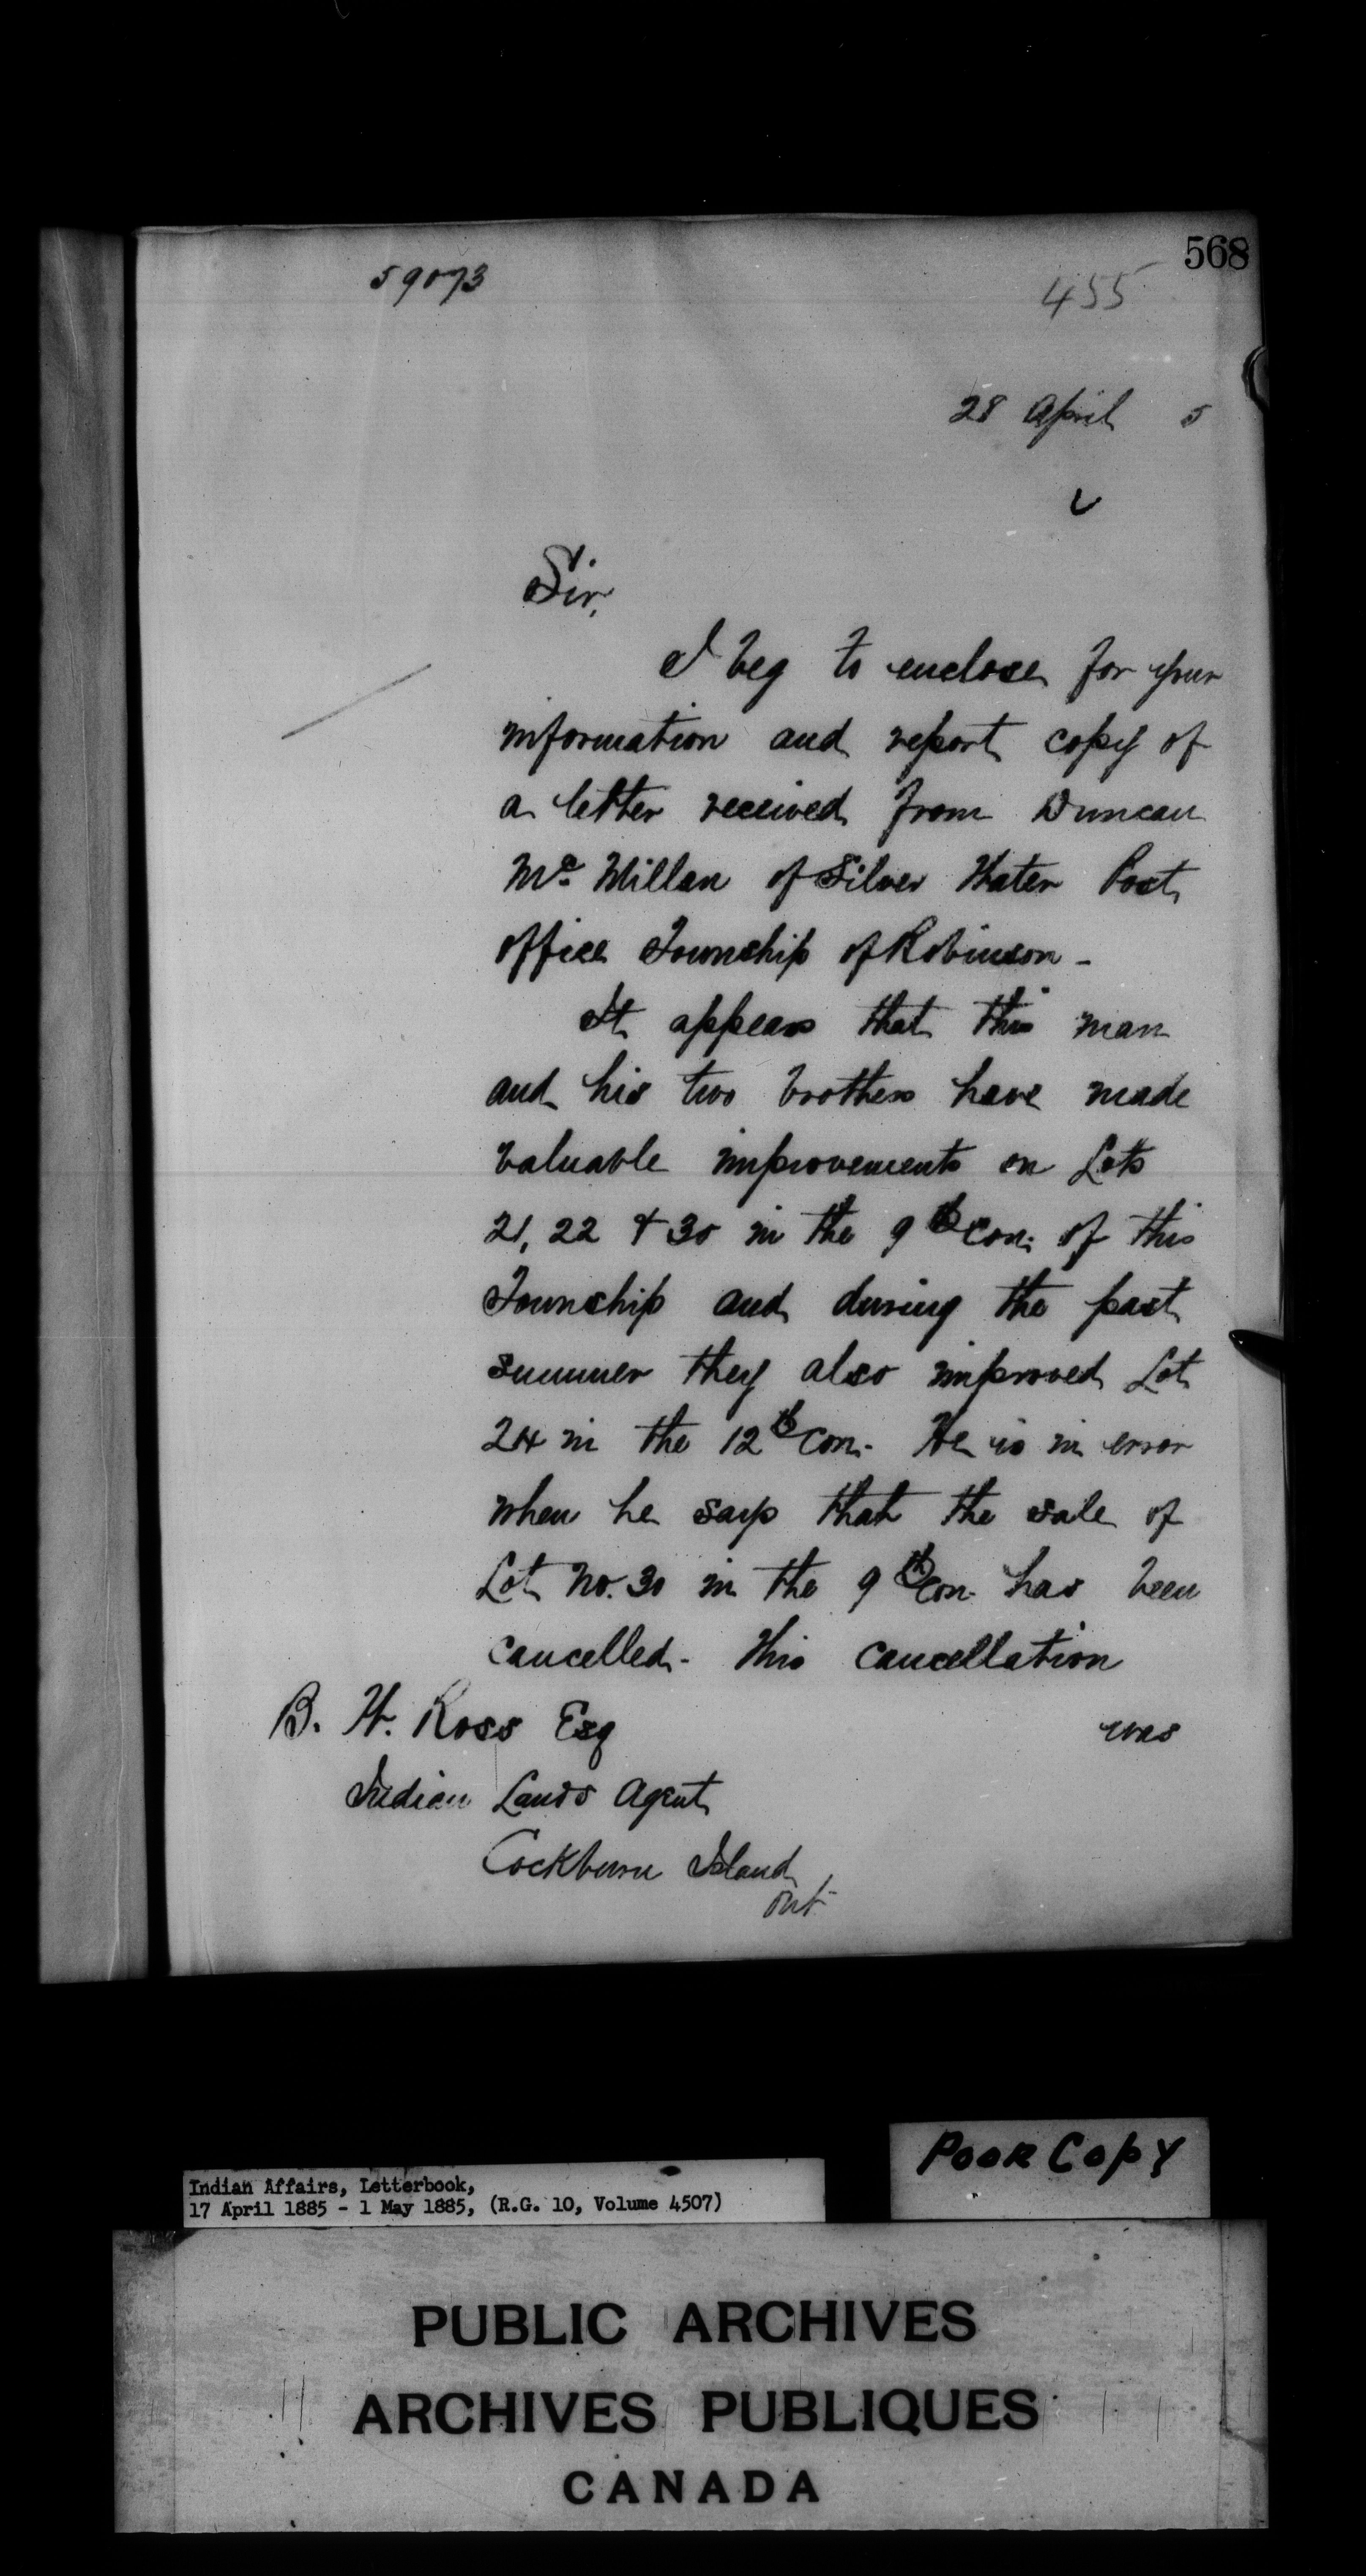 568
59073
455
28 April 5
Sir,
I beg to enclose for your
information and report copy of
a letter received from Duncan
Mc. Millan of Silver Water Post
office Township of Robinson -
It appears that this man
and his two brothers have made
valuable improvements on Lots
21, 22 & 30 in the 9th Con: of this
Township and during the past
summer they also improved Lot
24 in the 12th Con. He is in error
when he says that the sale of
Lot No. 30 in the 9th Con. has been
cancelled. This cancellation
was
B. W. Ross Esq
Indian Lands Agent
Cockburn Island
Ont
Poor Copy
Indian Affairs, Letterbook,
17 April 1885 - 1 May 1885, (R.G. 10, Volume 4507)
PUBLIC ARCHIVES
ARCHIVES PUBLIQUES
CANADA